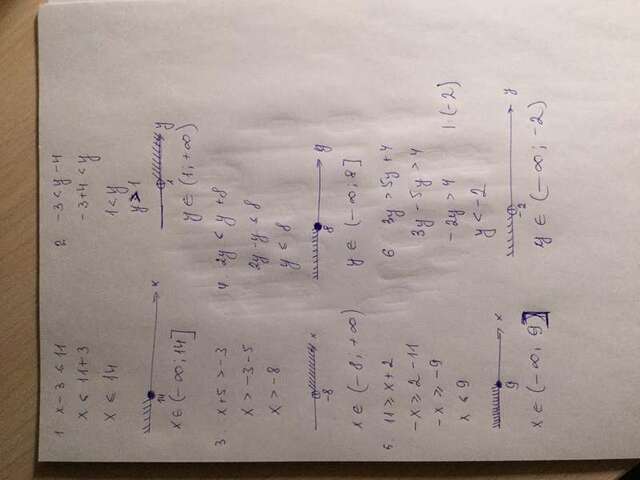 1 x-3≤11
x ≤ 11+3
x ≤ 14
14 x
x∈(-∞;14]
2 -3<y-4
-3+4<y
1<y
y>1
1 y
y∈(1;+∞)
3 x+5>-3
x>-3-5
x>-8
-8 x
x∈(-8;+∞)
4 2y ≤ y+8
2y-y ≤ 8
y ≤ 8
8 y
y∈(-∞;8]
5. 11≥x+2
-x≥2-11
-x≥-9
x≤9
9 x
x∈(-∞;9]
6 3y>5y+4
3y-5y>4
-2y>4 |:(-2)
y<-2
-2 y
y∈(-∞;-2)